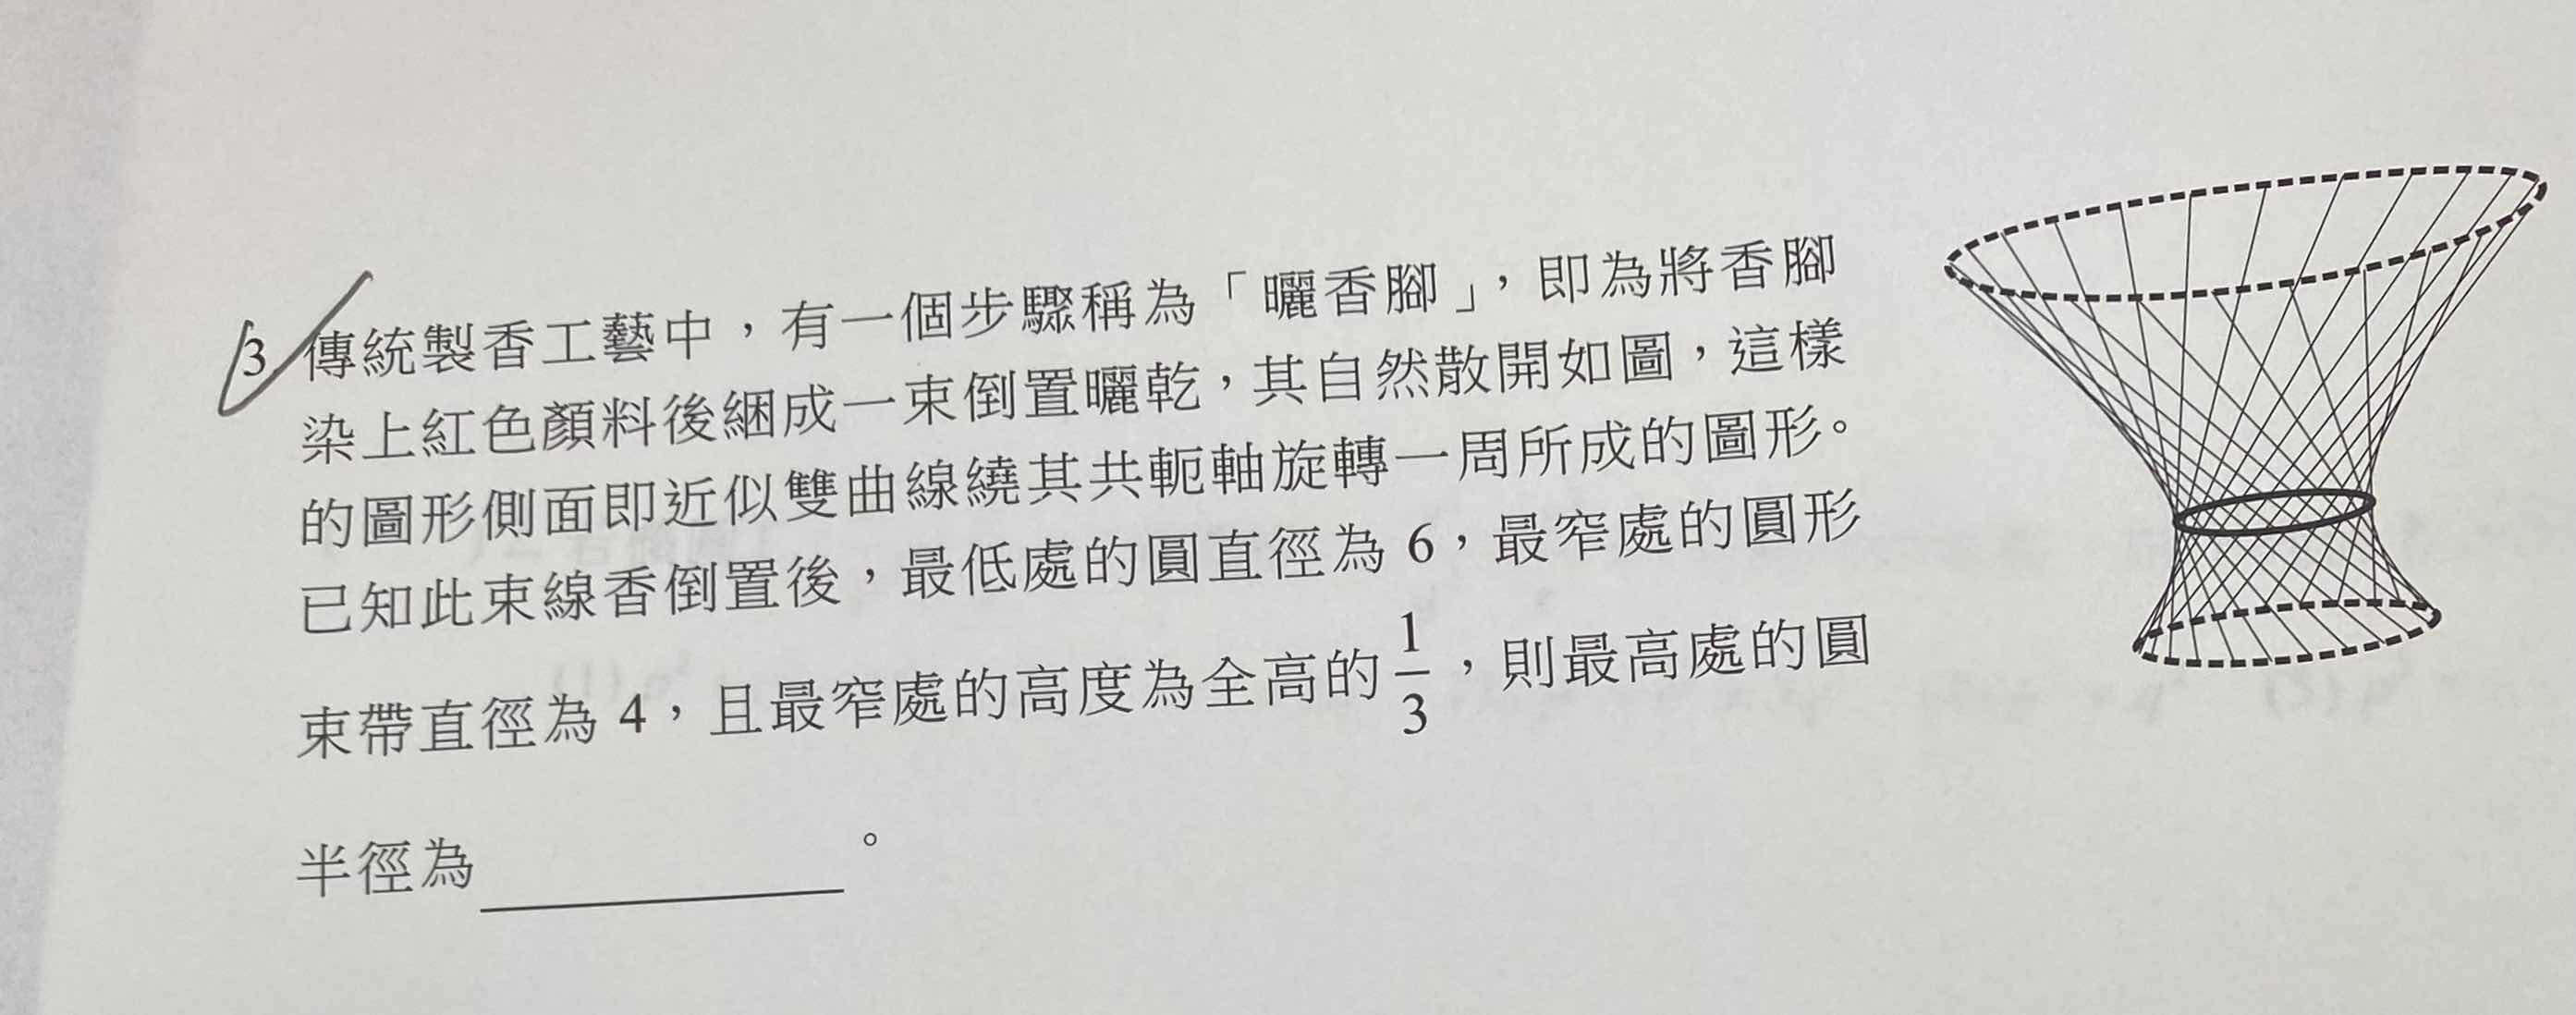 3. 傳統製香工藝中，有一個步驟稱為「曬香腳」，即為將香腳
染上紅色顏料後綑成一束倒置曬乾，其自然散開如圖，這樣
的圖形側面即近似雙曲線繞其共軛軸旋轉一周所成的圖形。
已知此束線香倒置後，最低處的圓直徑為 6，最窄處的圓形
束帶直徑為 4，且最窄處的高度為全高的 1/3，則最高處的圓
半徑為________。